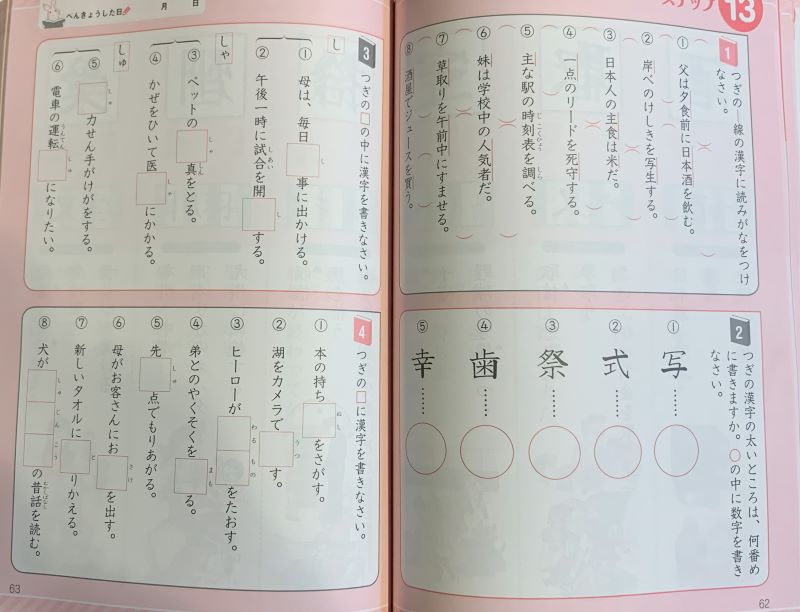 ステップ
13
1
つぎの―線の漢字に読みがなをつけ
なさい。
① 父は夕食前に日本酒を飲む。
② 岸べのけしきを写生する。
③ 日本人の主食は米だ。
④ 一点のリードを死守する。
⑤ 主な駅の時刻表を調べる。
じこくひょう しら
⑥ 妹は学校中の人気者だ。
⑦ 草取りを午前中にすませる。
⑧ 酒屋でジュースを買う。
2
つぎの漢字の太いところは、何番め
に書きますか。○の中に数字を書き
なさい。
① 写……
② 式……
③ 祭……
④ 歯……
⑤ 幸……
62
べんきょうした日 月 日
3
つぎの□の中に漢字を書きなさい。
し
① 母は、毎日□事に出かける。
し
② 午後一時に試合を開□する。
しあい し
しゃ
③ ペットの□真をとる。
しゃ しん
④ かぜをひいて医□にかかる。
しゃ
しゅ
⑤ □力せん手がけがをする。
しゅ
⑥ 電車の運転□になりたい。
うんてん しゅ
4
つぎの□に漢字を書きなさい。
① 本の持ち□をさがす。
ぬし
② 湖をカメラで□す。
うつ
③ ヒーローが□□をたおす。
わる もの
④ 弟とのやくそくを□る。
まも
⑤ 先□点でもりあがる。
しゅ
⑥ 母がお客さんにお□を出す。
さけ
⑦ 新しいタオルに□りかえる。
と
⑧ 犬が□□□の昔話を読む。
しゅ じん こう むかしばなし
63